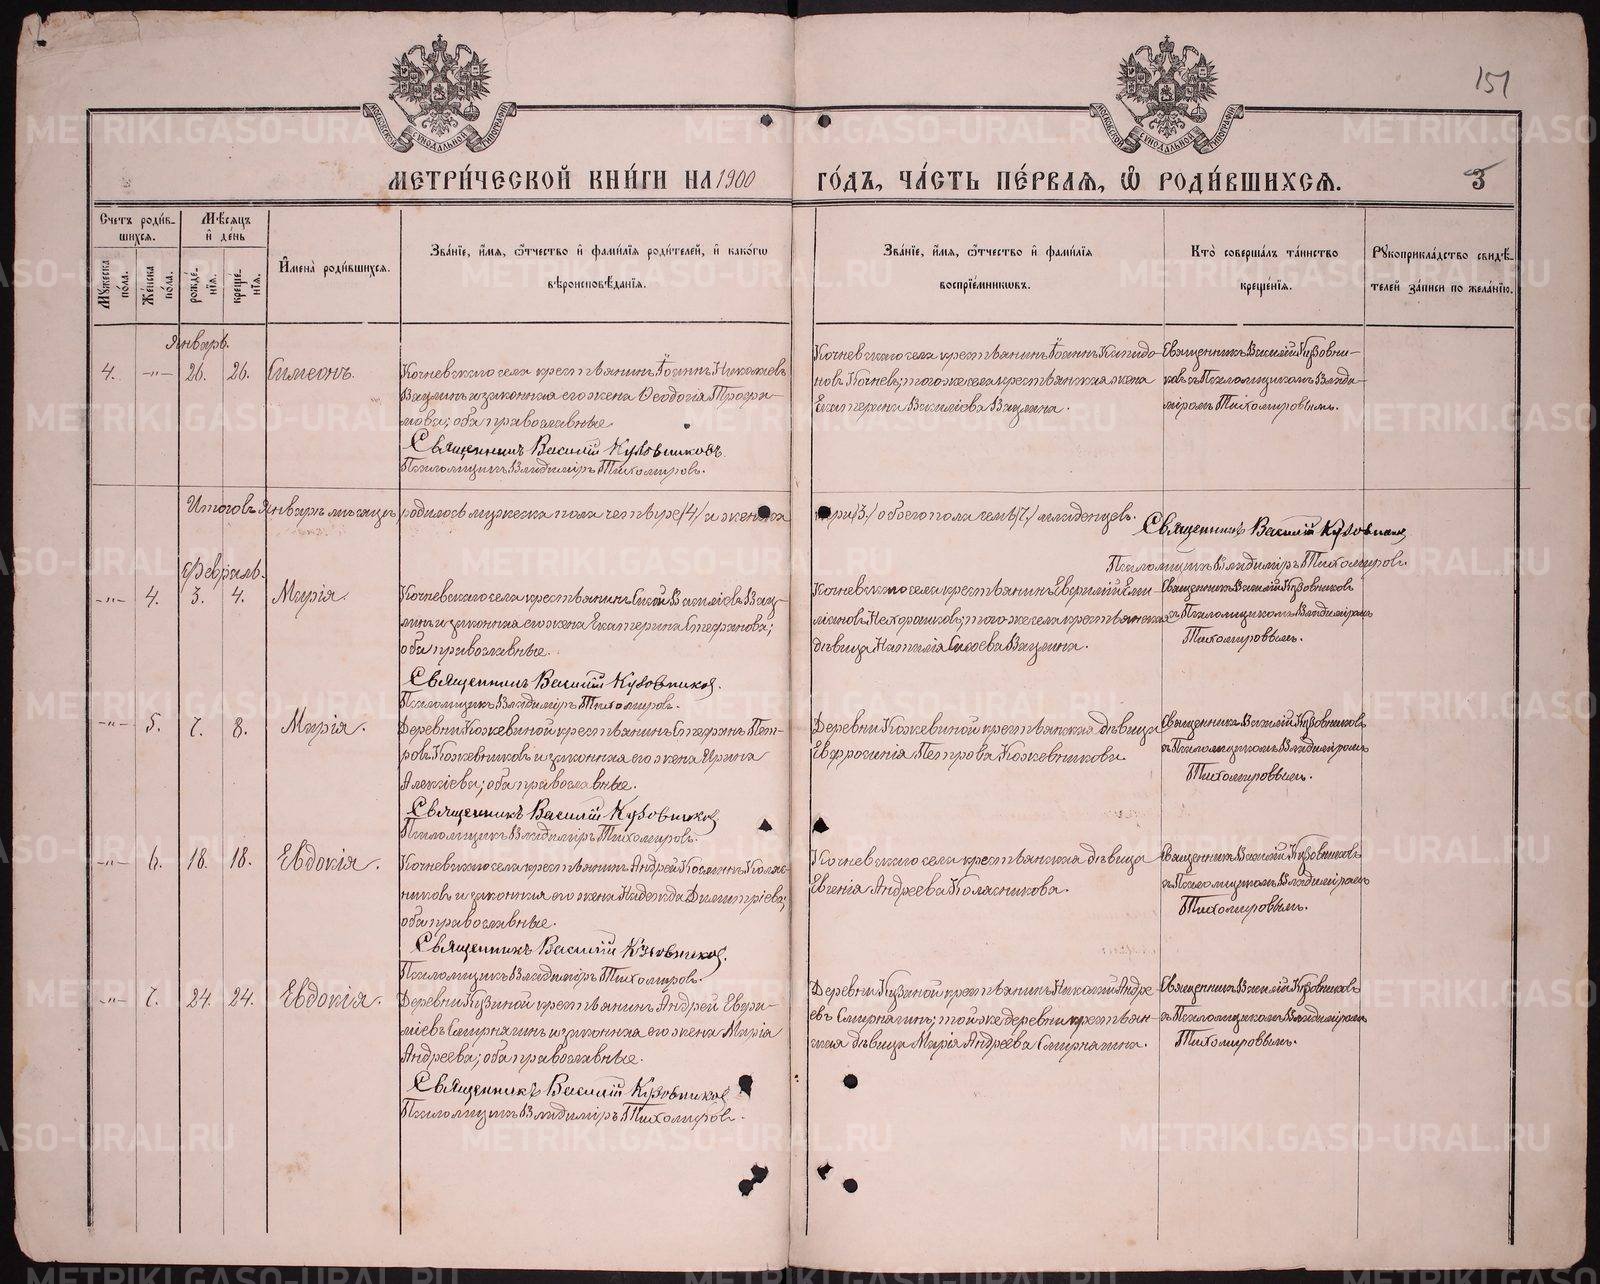 151
МОСКОВСКОЙ СѴНОДАЛЬНОЙ ТИПОГРАФІИ
МОСКОВСКОЙ СѴНОДАЛЬНОЙ ТИПОГРАФІИ
МЕТРИ́ЧЕСКОЙ КНИ́ГИ НА 1900 ГО́ДЪ, ЧА́СТЬ ПЕ́РВАѦ, Ѡ҆ РОДИ́ВШИХСѦ. 3
Счетъ роди́в-
шихсѧ.
Мѣ́сѧцъ
и҆ де́нь
Мꙋ́жеска
по́ла.
Же́нска
по́ла.
рожде́-
нїѧ.
креще́-
нїѧ.
И҆мена̀ роди́вшихсѧ.
Зва́нїе, и҆́мѧ, ѻ҆́тчество и҆ фами́лїѧ роди́телей, и҆ како́гѡ
вѣроисповѣ́данїѧ.
Зва́нїе, и҆́мѧ, ѻ҆́тчество и҆ фами́лїѧ
воспрїе́мникѡвъ.
Кто̀ соверша́лъ та́инство
креще́нїѧ.
Рꙋкоприкла́дство свидѣ́-
телей за́писи по жела́нїю.
Январь.
4. -"- 26. 26. Симеонъ.
Кочневскаго села крестьянинъ Іоаннъ Николаевъ
Вацлинъ и законная его жена Ѳеодосія Трофи-
мова; оба православные.
Священникъ Василій Кузовниковъ.
Псаломщикъ Владиміръ Тихомировъ.
Кочневскаго села крестьянинъ Іоаннъ
новъ Кочневъ; того же села крестьянская жена
Екатерина Василіева Вацлина.
Священникъ Василій Кузовни-
ковъ съ Псаломщикомъ Влади-
міромъ Тихомировымъ.
Итого въ Январѣ мѣсяцѣ родилось мужеска пола четыре /4/ и женска три /3/ обоего пола семь /7/ младенцевъ.
Священникъ Василій Кузовниковъ
Псаломщикъ Владиміръ Тихомировъ.
Февраль.
-"- 4. 3. 4. Марія.
Кочневскаго села крестьянинъ Василіевъ Вац-
линъ и законная его жена Екатерина Стефанова;
оба православные.
Священникъ Василій Кузовниковъ.
Псаломщикъ Владиміръ Тихомировъ.
Кочневскаго села крестьянинъ Евфимій Еми-
ліановъ Нехорошковъ; того же села крестьянская
дѣвица Наталія Вацлина.
Священникъ Василій Кузовниковъ
съ Псаломщикомъ Владиміромъ
Тихомировымъ.
-"- 5. 7. 8. Марія.
Деревни Кожевиной крестьянинъ Стефанъ Пет-
ровъ Кожевниковъ и законная его жена Ирина
Алексіева; оба православные.
Священникъ Василій Кузовниковъ
Псаломщикъ Владиміръ Тихомировъ.
Деревни Кожевиной крестьянская дѣвица
Евфросинія Петрова Кожевникова.
Священникъ Василій Кузовниковъ
съ Псаломщикомъ Владиміромъ
Тихомировымъ.
-"- 6. 18. 18. Евдокія.
Кочневскаго села крестьянинъ Андрей Косминъ Колас-
никовъ и законная его жена Надежда Димитріева;
оба православные.
Священникъ Василій Кузовниковъ.
Псаломщикъ Владиміръ Тихомировъ.
Кочневскаго села крестьянская дѣвица
Евгенія Андреева Коласникова.
Священникъ Василій Кузовниковъ
съ Псаломщикомъ Владиміромъ
Тихомировымъ.
-"- 7. 24. 24. Евдокія.
Деревни Кузиной крестьянинъ Андрей Евфи-
міевъ Смирнягинъ и законная его жена Марія
Андреева; оба православные.
Священникъ Василій Кузовниковъ
Псаломщикъ Владиміръ Тихомировъ.
Деревни Кузиной крестьянинъ Николай Андре-
евъ Смирнягинъ; той же деревни крестьян-
ская дѣвица Марія Андреева Смирнягина.
Священникъ Василій Кузовниковъ
съ Псаломщикомъ Владиміромъ
Тихомировымъ.
METRIKI.GASO-URAL.RU